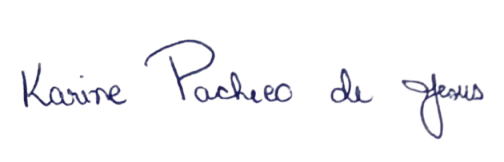 Karine Pacheco de Jesus